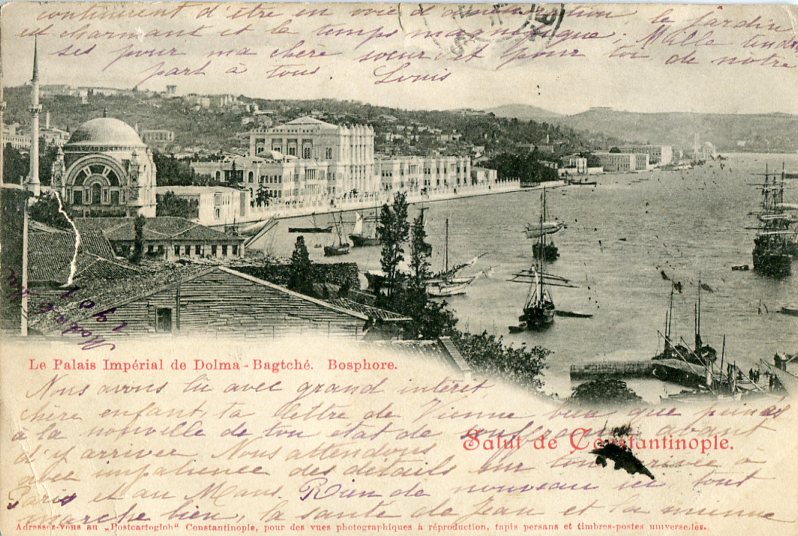 continuent d'être en voie d'amélioration le jardin
est charmant et le temps magnifique. Mille tendres-
ses pour ma chère sœur et pour toi de notre
part à tous. Louis
Le Palais Impérial de Dolma-Bagtché. Bosphore.
Nous avons lu avec grand intérêt,
chère enfant, ta lettre de Vienne
à la nouvelle de ton état de
d'y arriver. Nous attendons
avec impatience des détails sur ton arrivée à
Paris et au Mans. Rien de nouveau ici, tout
marche bien, la santé de ta et la mienne
Salut de Constantinople.
Adressez-vous au „Postcartogloh" Constantinople, pour des vues photographiques à réproduction, tapis persans et timbres-postes universelles.